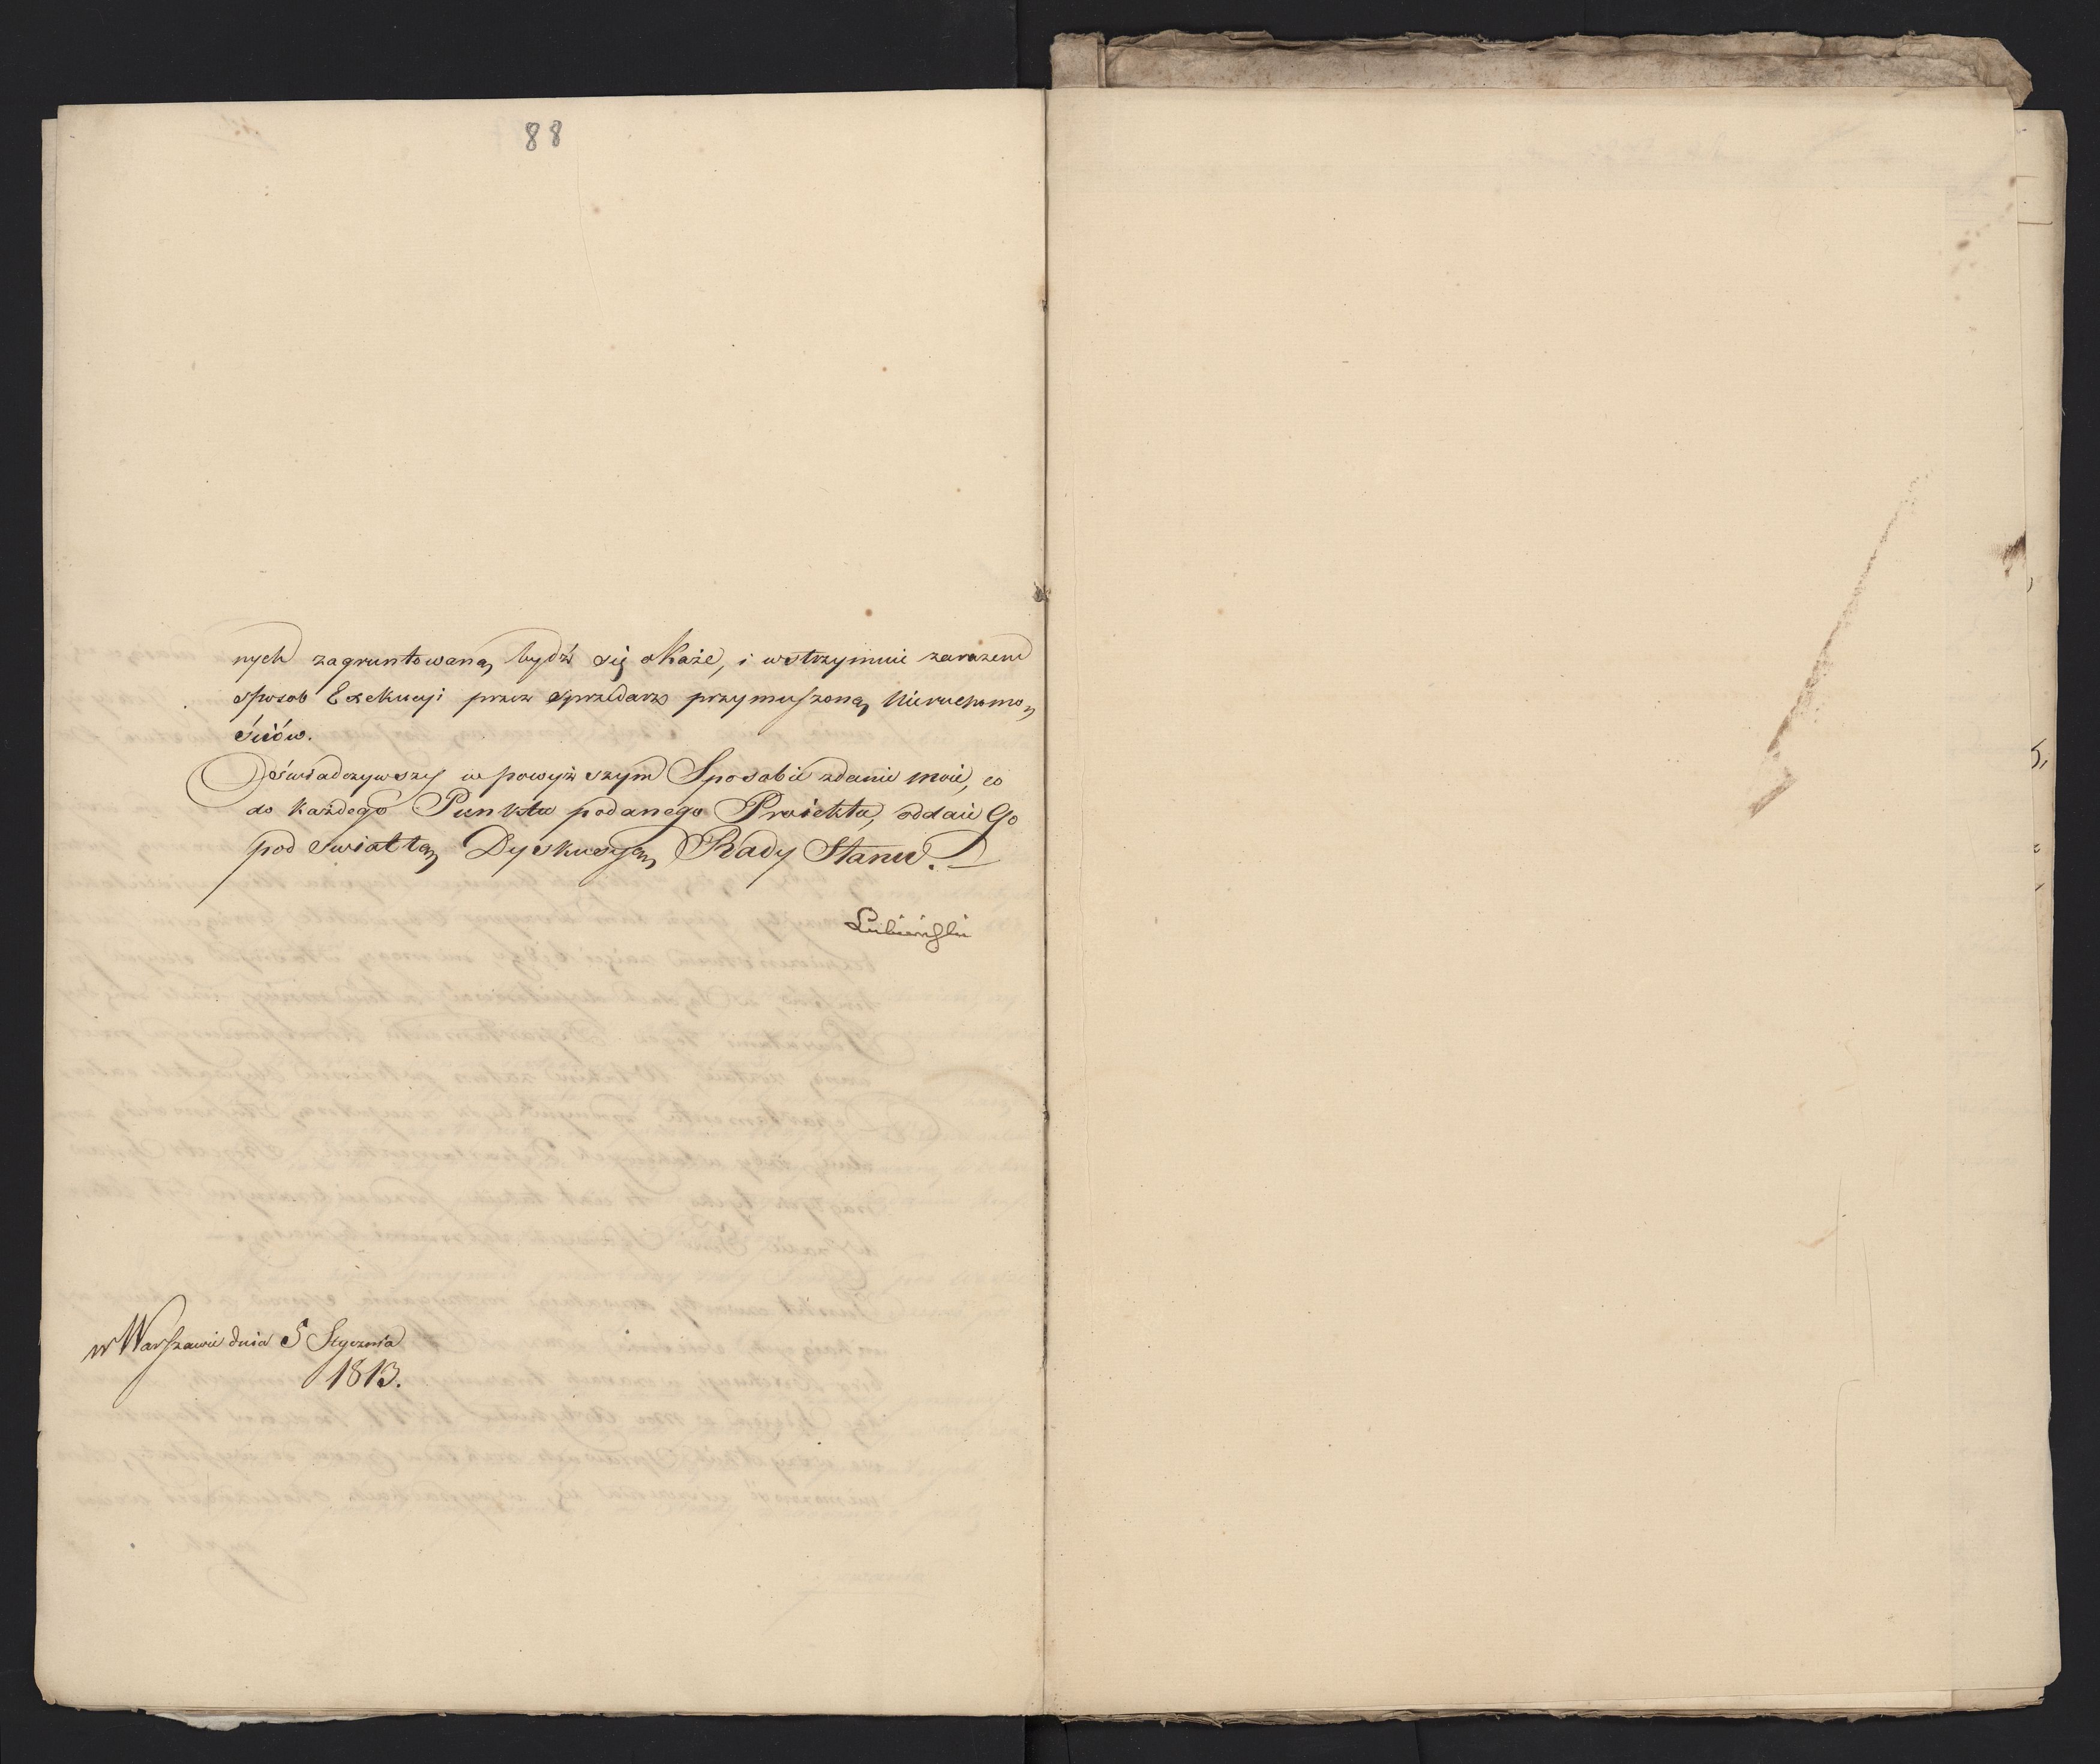 88
nych zagruntowaną bydź się okaże, i wstrzymuie zarazem
sposob Exekucyi przez sprzedarz przymuszoną Nieruchomo
ściów.
Oświadczywszy w powyższym Sposobie zdanie moie, co
do każdego Punktu podanego Proiektu, oddaię Go
pod swiatłą Dyskussyą Rady Stanu.
Łubieński
w Warszawie dnia 5 Stycznia
1813.